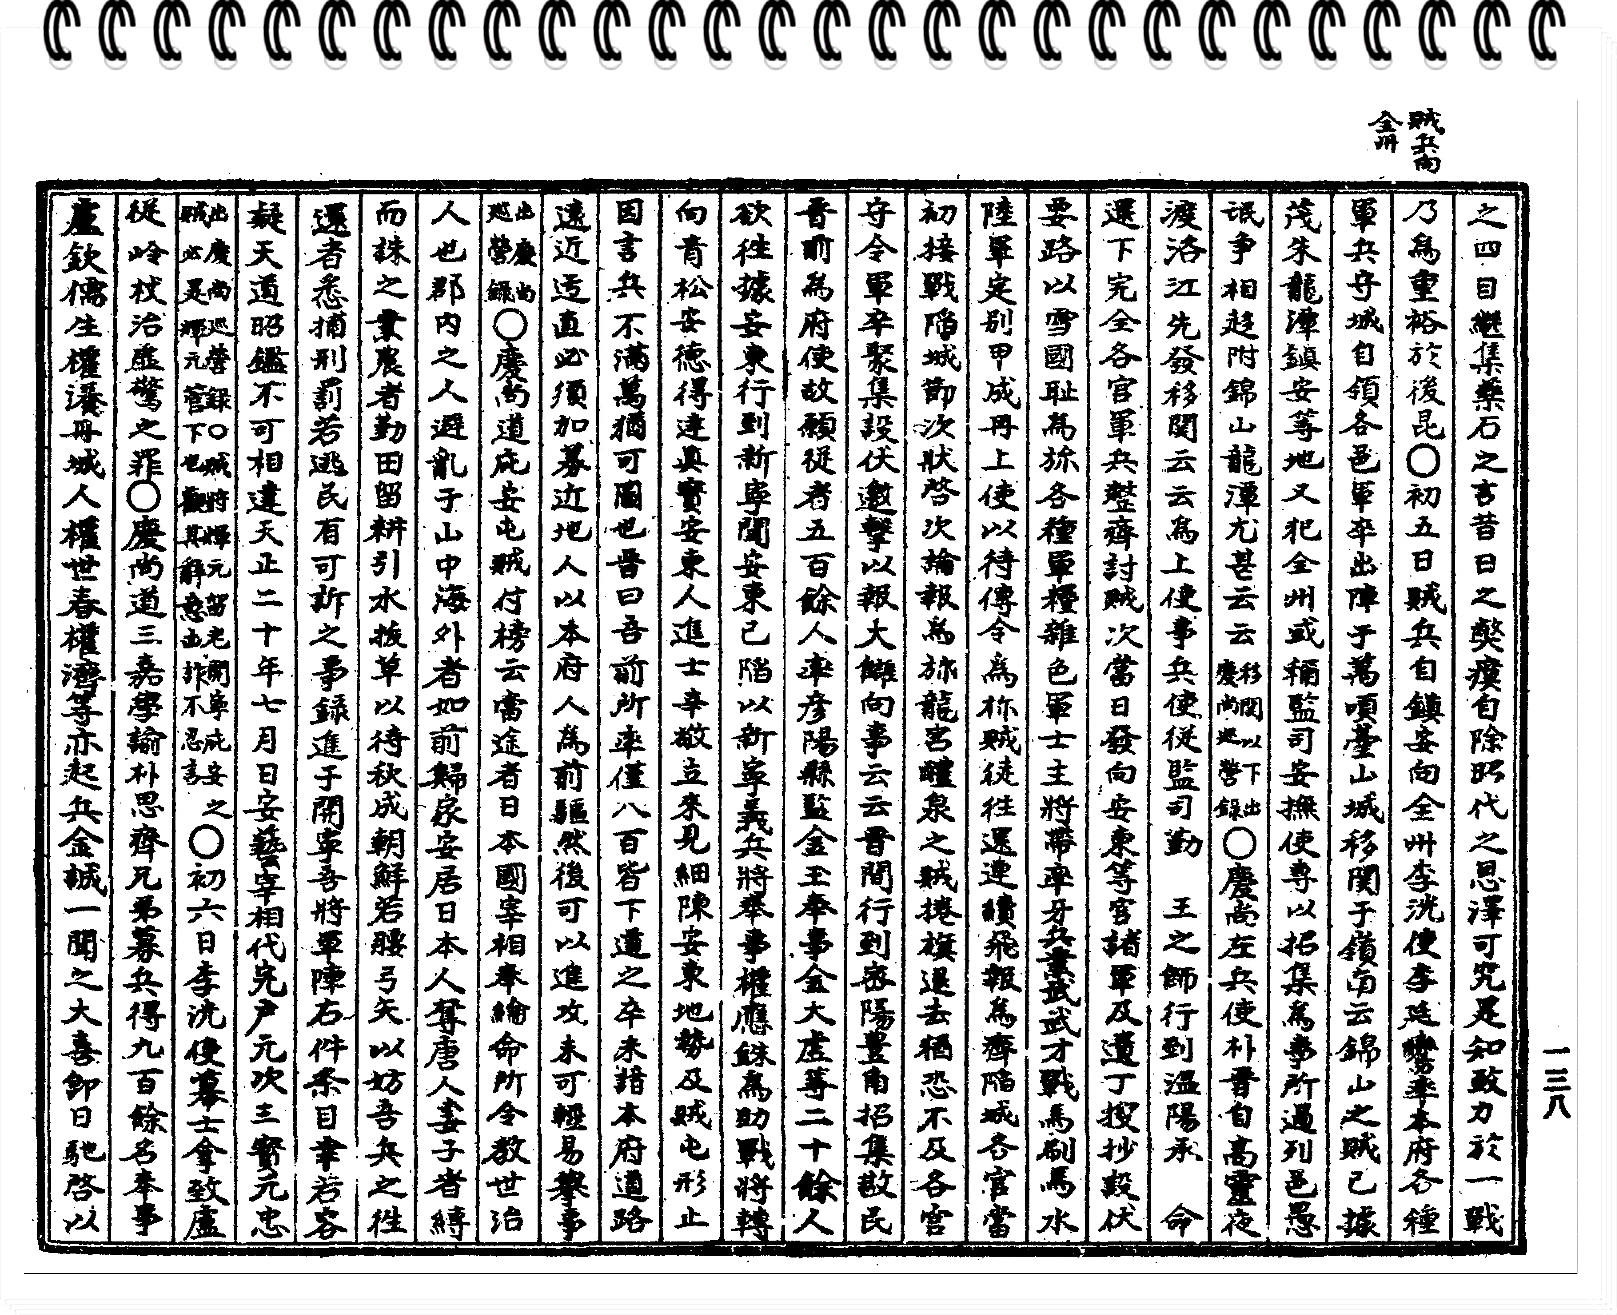 賊兵向
全州
之四目繼集藥石之言昔日之獘瘼自除昭代之恩澤可究是知致力於一戰
乃爲重裕於後昆○初五日賊兵自鎭安向全州李洸使李廷鸞率本府各種
軍兵守城自領各邑軍卒出陣于萬頃臺山城移関于嶺南云錦山之賊已據
茂朱龍潭鎭安等地又犯全州或稱監司安撫使専以招集爲事所過列邑愚
氓爭相趍附錦山龍潭尤甚云云移関以下出慶尚巡營録○慶尚左兵使朴晋自高靈夜
渡洛江先發移関云云爲上使事兵使従監司勤 王之師行到溫陽承 命
還下完全各官軍兵整齊討賊次當日發向安東等官諸軍及遺丁捜抄設伏
要路以雪國耻爲旀各種軍粮雜色軍士主將帶率牙兵業武武才戰馬刷馬水
陸軍定別甲成丹上使以待傳令爲旀賊徒徃還連續飛報爲齊陷城各官當
初接戰陷城節次狀啓次論報爲旀龍宮醴泉之賊捲旗退去猶恐不及各官
守令軍卒聚集設伏邀擊以報大讎向事云云晋間行到密陽豊角招集散民
晋前爲府使故願從者五百餘人率彦陽縣監金玉奉事金大虛等二十餘人
欲徃據安東行到新寧聞安東已陷以新寧義兵將奉事權應銖爲助戰將轉
向青松安德得達眞寶安東人進士辛敬立來見細陳安東地勢及賊屯形止
因言兵不滿萬猶可圖也晋曰吾前所率僅八百皆下道之卒未諳本府道路
遠近迃直必須加募近地人以本府人爲前驅然後可以進攻未可輕易擧事
出慶尚巡營録○慶尚道庇安屯賊付榜云當途者日本國宰相奉綸命所令教世治
人也郡內之人避亂于山中海外者如前歸家安居日本人奪唐人妻子者縛
而誅之業農者勤田留耕引水拔草以待秋成朝鮮若腰弓矢以妨吾兵之徃
還者悉捕刑罰若逃民有可訴之事録進于開寧吾將軍陣右件条目聿若容
疑天道昭鑑不可相違天正二十年七月日安藝宰相代完戶元次三寶元忠
出慶尚巡營録○賊將輝元留屯開寧庇安之賊必是輝元管下也觀其辭意凶詐不忍言○初六日李洸使募士拿致盧
從岭杖治虛驚之罪○慶尚道三嘉學諭朴思齊兄弟募兵得九百餘名奉事
盧欽儒生權瀁丹城人權世春權濟等亦起兵金誠一聞之大喜卽日馳啓以
一三八